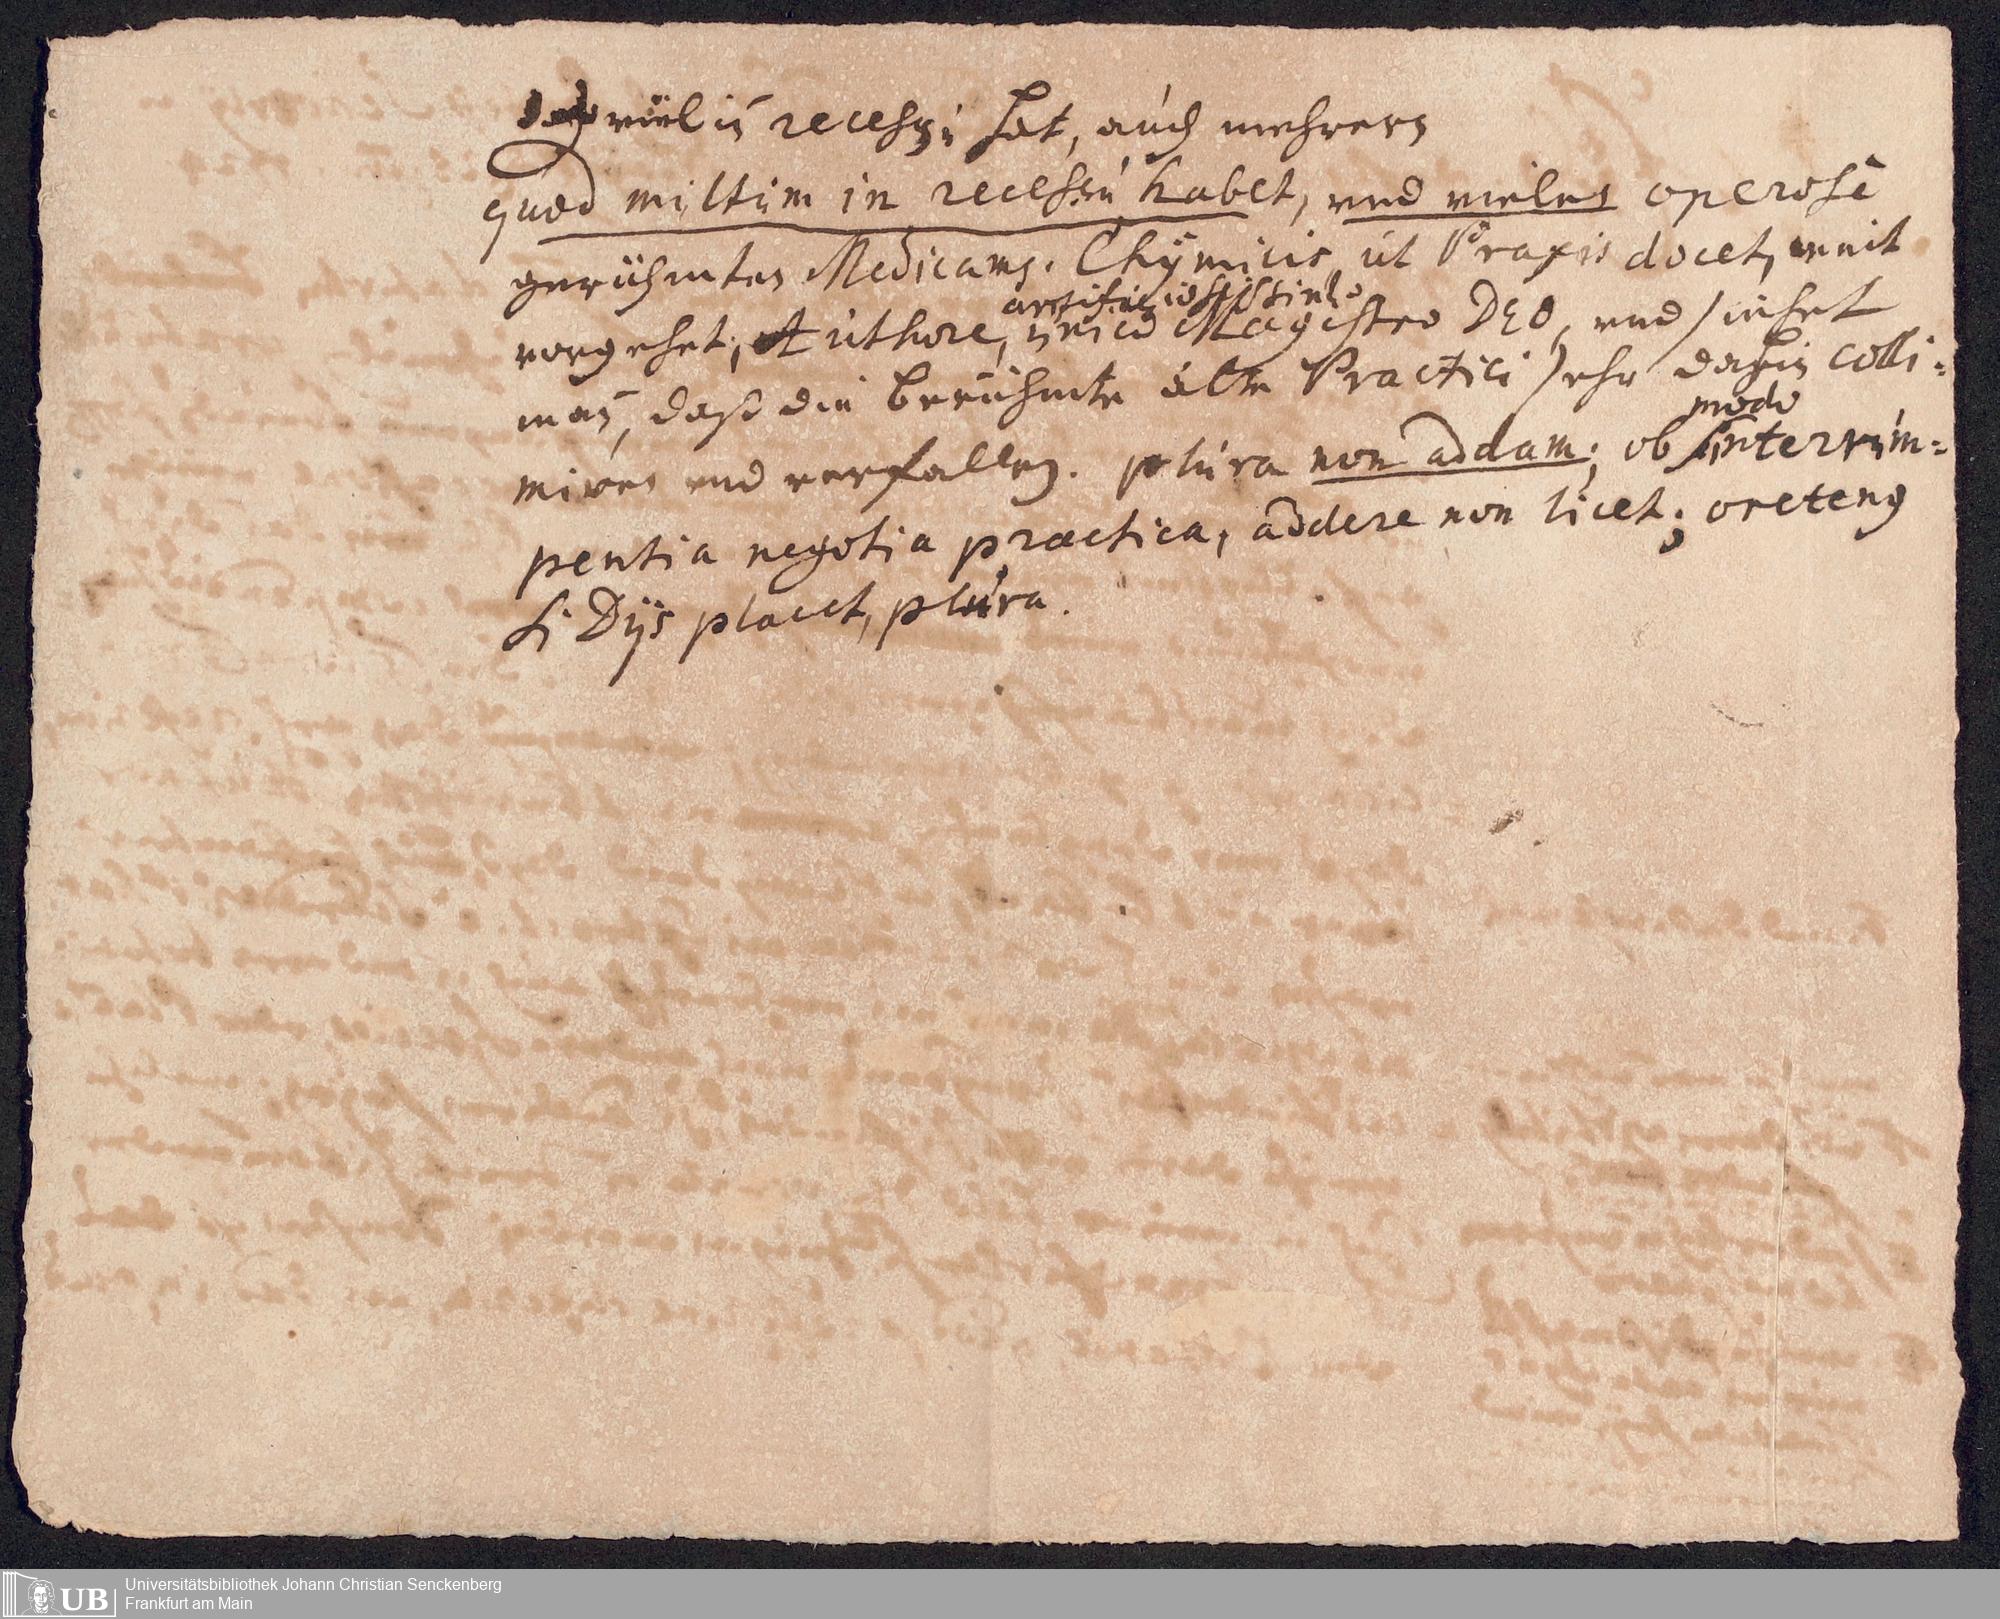 viel in recessu hat, auch mehrers
quod multum in recessu habet, und vieles operosè
gerühmten Medicams. Chymicis, ut Praxis docet, weit
artificiosissimo
vorgehet, Authore, unico Magistro DEO, und siehet
man, daß die berühmte alte Practici sehr dahin colli-
modo
miren und verfallen. plura non addam; ob interrum-
pentia negotia practica, addere non licet; oretenus
si Dijs placet, plura.
UB Universitätsbibliothek Johann Christian Senckenberg
Frankfurt am Main